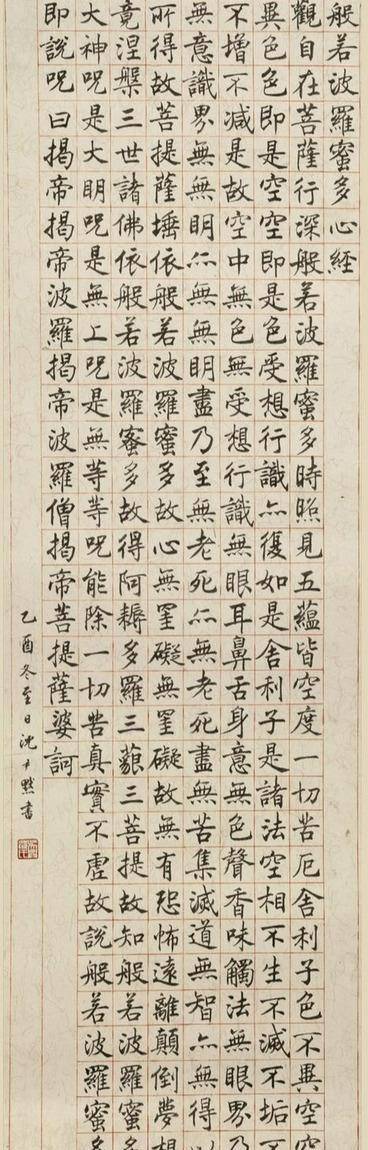 般若波羅蜜多心經
觀自在菩薩行深般若波羅蜜多時照見五蘊皆空度一切苦厄舍利子色不異空空
異色色即是空空即是色受想行識亦復如是舍利子是諸法空相不生不滅不垢不
不增不減是故空中無色無受想行識無眼耳鼻舌身意無色聲香味觸法無眼界乃
無意識界無無明亦無無明盡乃至無老死亦無老死盡無苦集滅道無智亦無得以
所得故菩提薩埵依般若波羅蜜多故心無罣礙無罣礙故無有恐怖遠離顛倒夢想
竟涅槃三世諸佛依般若波羅蜜多故得阿耨多羅三藐三菩提故知般若波羅蜜多
大神呪是大明呪是無上呪是無等等呪能除一切苦真實不虛故說般若波羅蜜多
即說呪曰揭帝揭帝波羅揭帝波羅僧揭帝菩提薩婆訶
乙酉冬至日沈尹默書